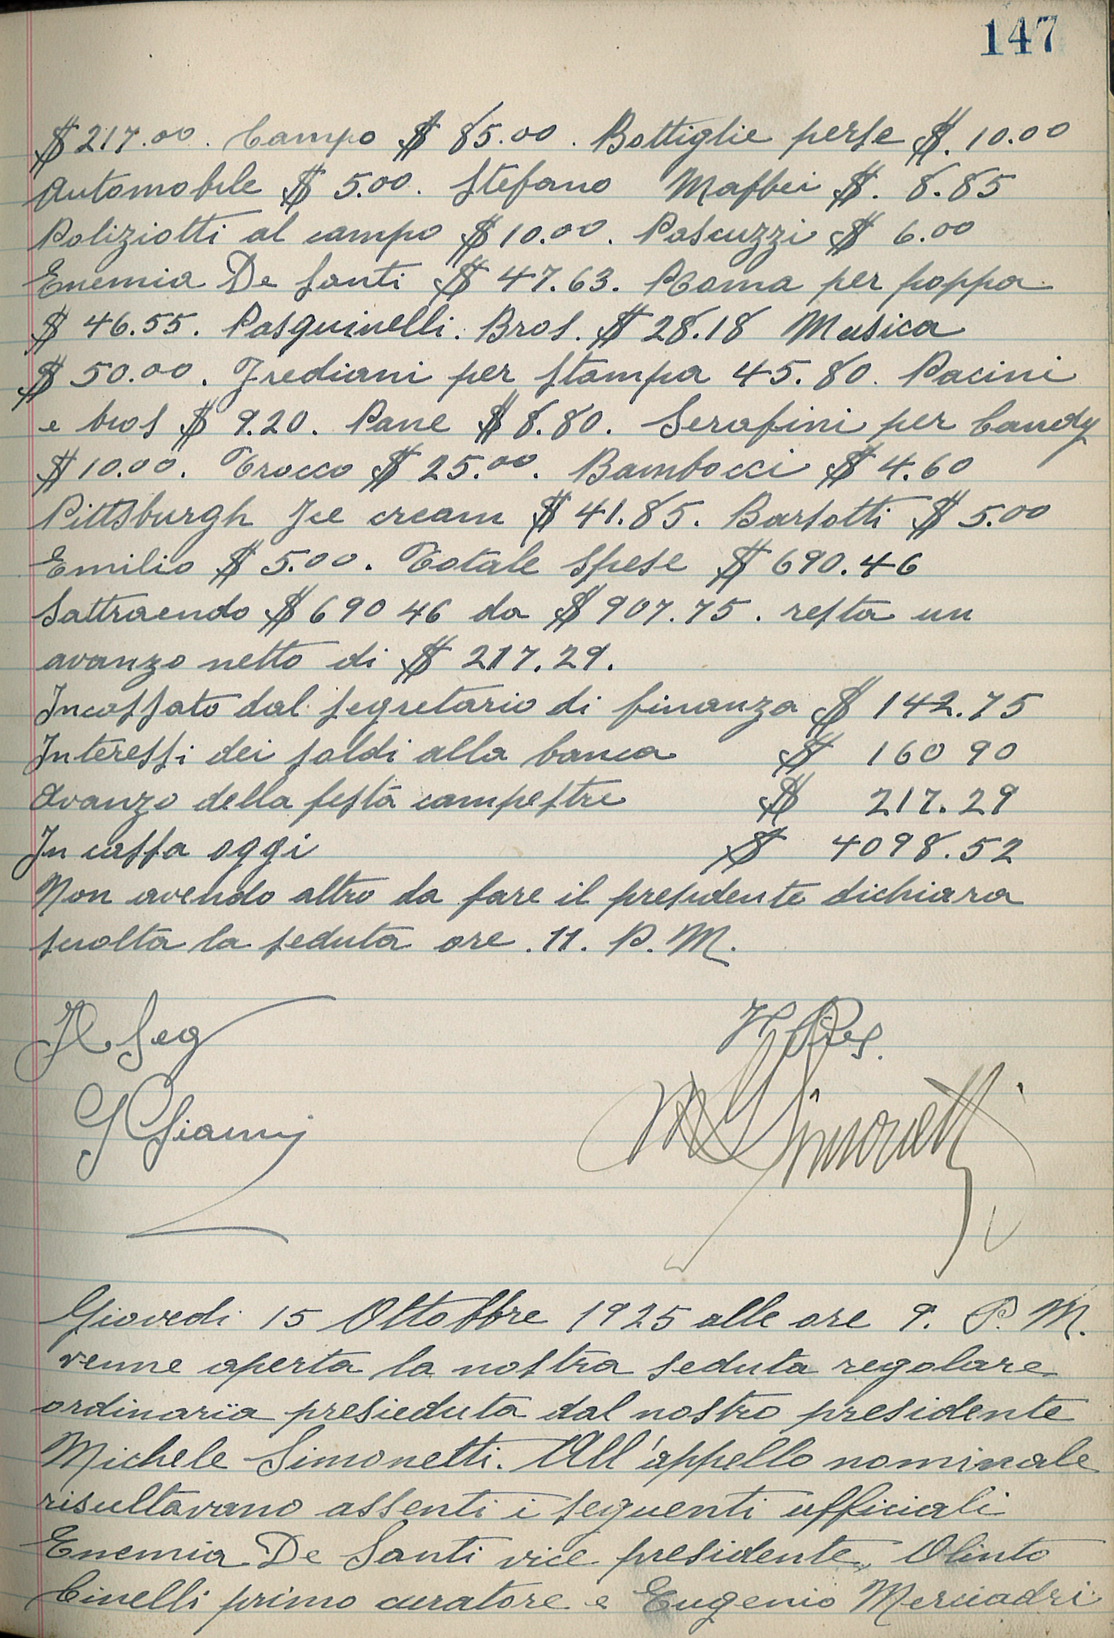 147
$217.00. Campo $ 85.00. Bottiglie perse $. 10.00
Automobile $ 5.00. Stefano Maffei $. 8.85
Poliziotti al campo $ 10.00. Pascuzzi $ 6.00
Enemia De Santi $ 47.63. Roma per poppa
$ 46.55. Pasquinelli. Bros. $ 28.18 Musica
$ 50.00. Frediani per stampa 45.80. Pacini
e bros $ 9.20. Pane $ 8.80. Serafini per Candy
$ 10.00. Trocco $ 25.00. Bambocci $ 4.60
Pittsburgh Ice cream $ 41.85. Barsotti $ 5.00
Emilio $ 5.00. Totale spese $ 690.46
Sattraendo $ 690 46 da $ 907.75. resta un
avanzo netto di $ 217.29.
Incassato dal segretario di finanza $ 142.75
Interessi dei soldi alla banca $ 160 90
Avanzo della festa campestre $ 217.29
In cassa oggi $ 4098.52
Non avendo altro da fare il presidente dichiara
sciolta la seduta ore. 11. P.M.
Il Seg
Il Pres.
G Gianni
M Simonetti
Giovedi 15 Ottobbre 1925 alle ore 9. P.M.
venne aperta la nostra seduta regolare
ordinaria presieduta dal nostro presidente
Michele Simonetti. All'appello nominale
risultavano assenti i seguenti ufficiali
Enemia De Santi vice presidente, Olinto
Cinelli primo curatore e Eugenio Mercadri